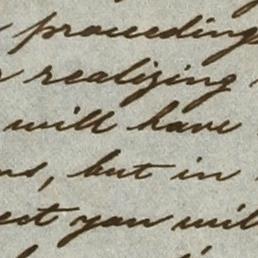 proceedings
realizing
will have
ns, but in
ect you will